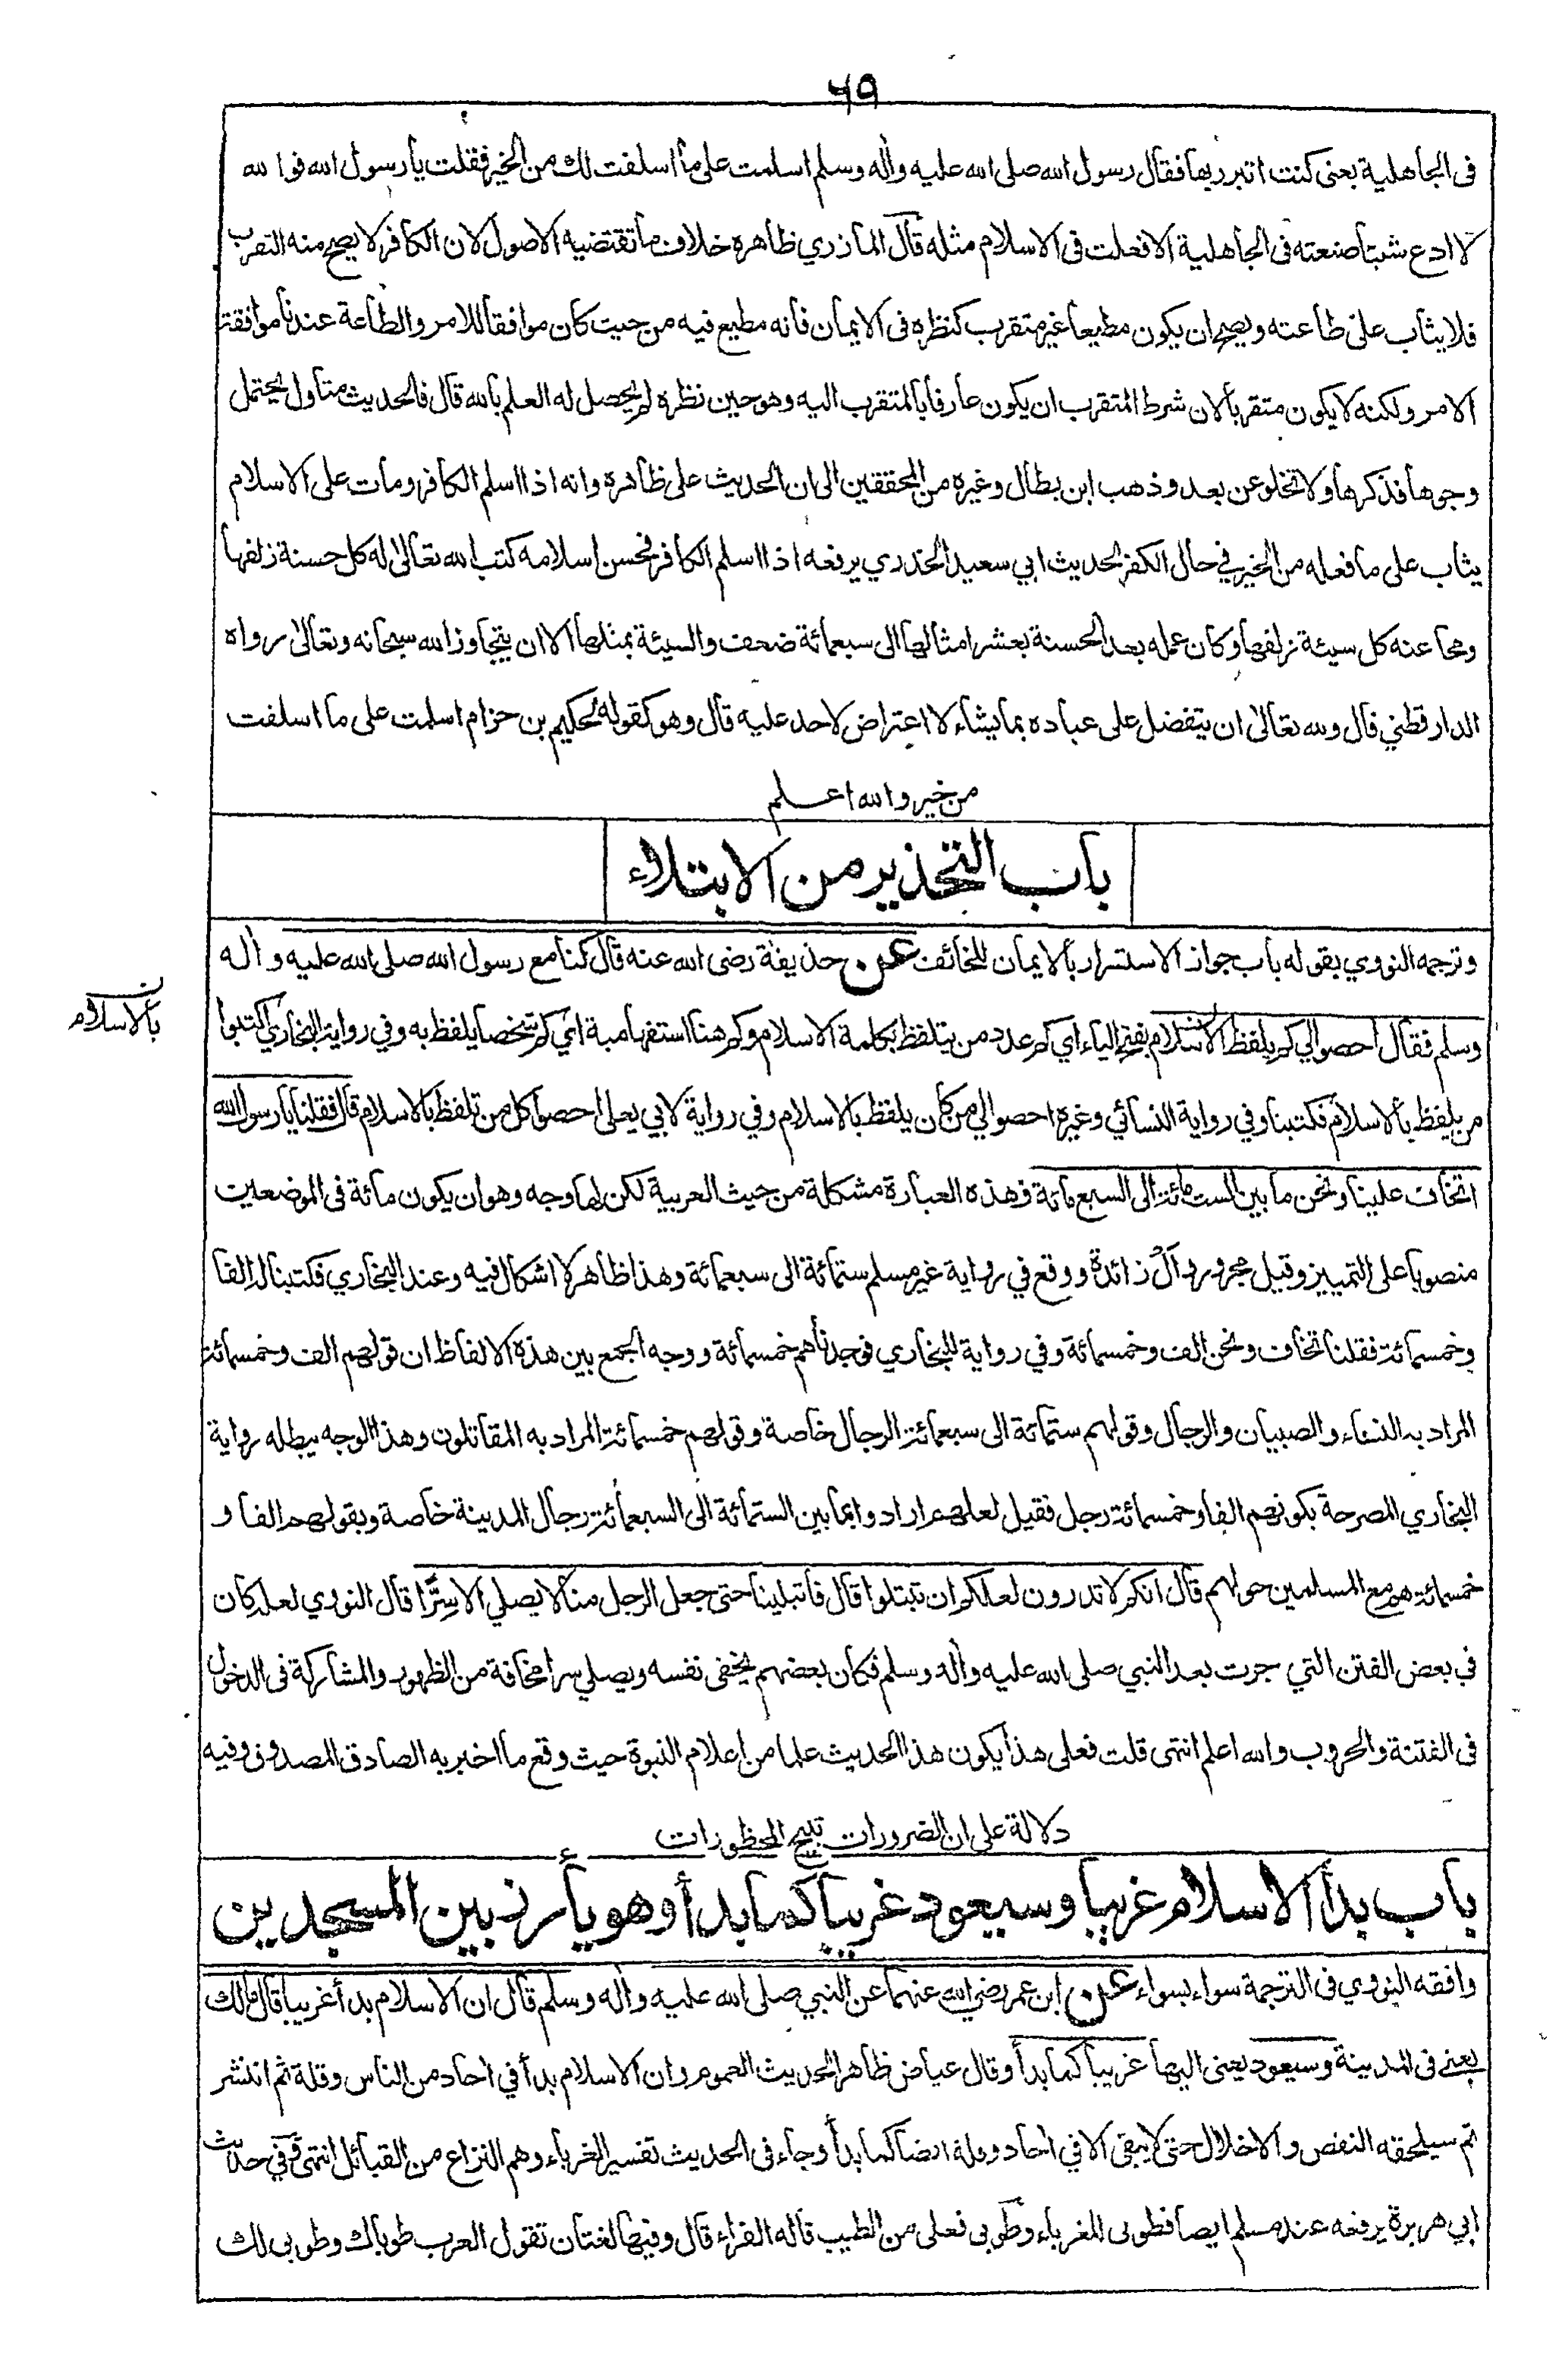 ٦٩
فى الجاهلية يعنى كنت اتبرر بها فقال رسول الله صلى الله عليه واٰله وسلم اسلمت على ما اسلفت لك من الخير فقلت يا رسول الله فوا لله
لا ادع شيئا صنعته فى الجاهلية الا فعلت فى الاسلام مثله قال المازري ظاهره خلاف ما تقتضيه الاصول لان الكافر لا يصح منه التقرب
فلا يثاب على طاعته ويصح ان يكون مطيعا غير متقرب كنظره فى الايمان فانه مطيع فيه من حيث كان موافقا للامر والطاعة عندنا موافقة
الامر ولكنه لا يكون متقربا لان شرط المتقرب ان يكون عارفا بالمتقرب اليه وهو حين نظره لم يحصل له العلم بالله قال فالحديث متاول يحتمل
وجوها فذكرها ولا تخلو عن بعد وذهب ابن بطال وغيره من المحققين الى ان الحديث على ظاهره وانه اذا اسلم الكافر ومات على الاسلام
يثاب على ما فعله من الخير في حال الكفر لحديث ابي سعيد الخدري يرفعه اذا اسلم الكافر فحسن اسلامه كتب الله تعالىٰ له كل حسنة زلفها
ومحا عنه كل سيئة زلفها وكان عمله بعد الحسنة بعشر امثالها الى سبعمائة ضعف والسيئة بمثلها الا ان يتجاوز الله سبحانه وتعالىٰ رواه
الدارقطني قال ولله تعالىٰ ان يتفضل على عباده بما يشاء لا اعتراض لاحد عليه قال وهو كقوله لحكيم بن حزام اسلمت على ما اسلفت
من خير والله اعلم
باب التحذير من الابتلاء
وترجمه النووي بقوله باب جواز الاستسرار بالايمان للخائف عن حذيفة رضى الله عنه قال كنا مع رسول الله صلى الله عليه واٰله
وسلم فقال احصوا لي كم يلفظ الاسلام بفتح الياء اي كم عدد من يتلفظ بكلمة الاسلام وكم هنا استفهامية اي كم شخصا يلفظ به وفي رواية البخاري اكتبوا
بالاسلام ن
من يلفظ بالاسلام فكتبنا وفي رواية النسائي وغيره احصوا لي من كان يلفظ بالاسلام وفي رواية لابي يعلى احصوا كل من تلفظ بالاسلام قال فقلنا يا رسول الله
اتخاف علينا ونحن ما بين الست مائة الى السبع مائة وهذه العبارة مشكلة من حيث العربية لكن لها وجه وهو ان يكون مائة فى الموضعين
منصوبا على التمييز وقيل مجرور وال زائدة ووقع في رواية غير مسلم ستمائة الى سبعمائة وهذا ظاهر لا اشكال فيه وعند البخاري فكتبنا له الفا
وخمسمائة فقلنا نخاف ونحن الف وخمسمائة وفي رواية للبخاري فوجدناهم خمسمائة ووجه الجمع بين هذه الالفاظ ان قولهم الف وخمسمائة
المراد به النساء والصبيان والرجال وقولهم ستمائة الى سبعمائة الرجال خاصة وقولهم خمسمائة المراد به المقاتلون وهذا الوجه يبطله رواية
البخاري المصرحة بكونهم الفا وخمسمائة رجل فقيل لعلهم ارادوا بما بين الستمائة الى السبعمائة رجال المدينة خاصة وبقولهم الفا و
خمسمائة هم مع المسلمين حولهم قال انكم لا تدرون لعلكم ان تبتلوا قال فابتلينا حتى جعل الرجل منا لا يصلي الا سرًّا قال النووي لعله كان
في بعض الفتن التي جرت بعد النبي صلى الله عليه واٰله وسلم فكان بعضهم يخفى نفسه ويصلي سرا مخافة من الظهور والمشاركة فى الدخول
فى الفتنة والحروب والله اعلم انتهى قلت فعلى هذا يكون هذا الحديث علما من اعلام النبوة حيث وقع ما اخبر به الصادق المصدوق وفيه
دلالة على ان الضرورات تبيح المحظورات
باب بدأ الاسلام غريبا وسيعود غريبا كما بدأ وهو يأرز بين المسجدين
وافقه النووي فى الترجمة سواء بسواء عن ابن عمر رضى الله عنهما عن النبي صلى الله عليه واٰله وسلم قال ان الاسلام بدأ غريبا قال مالك
يعنى فى المدينة وسيعود يعنى اليها غريبا كما بدأ وقال عياض ظاهر الحديث العموم وان الاسلام بدأ في احاد من الناس وقلة ثم انتشر
ثم سيلحقه النقص والاخلال حتى لا يبقى الا في احاد وقلة ايضا كما بدأ وجاء فى الحديث تفسير الغرباء وهم النزاع من القبائل انتهى وفي حديث
ابي هريرة يرفعه عند مسلم ايضا فطوبى للغرباء وطوبى فعلى من الطيب قاله الفراء قال وفيها لغتان تقول العرب طوباك وطوبى لك